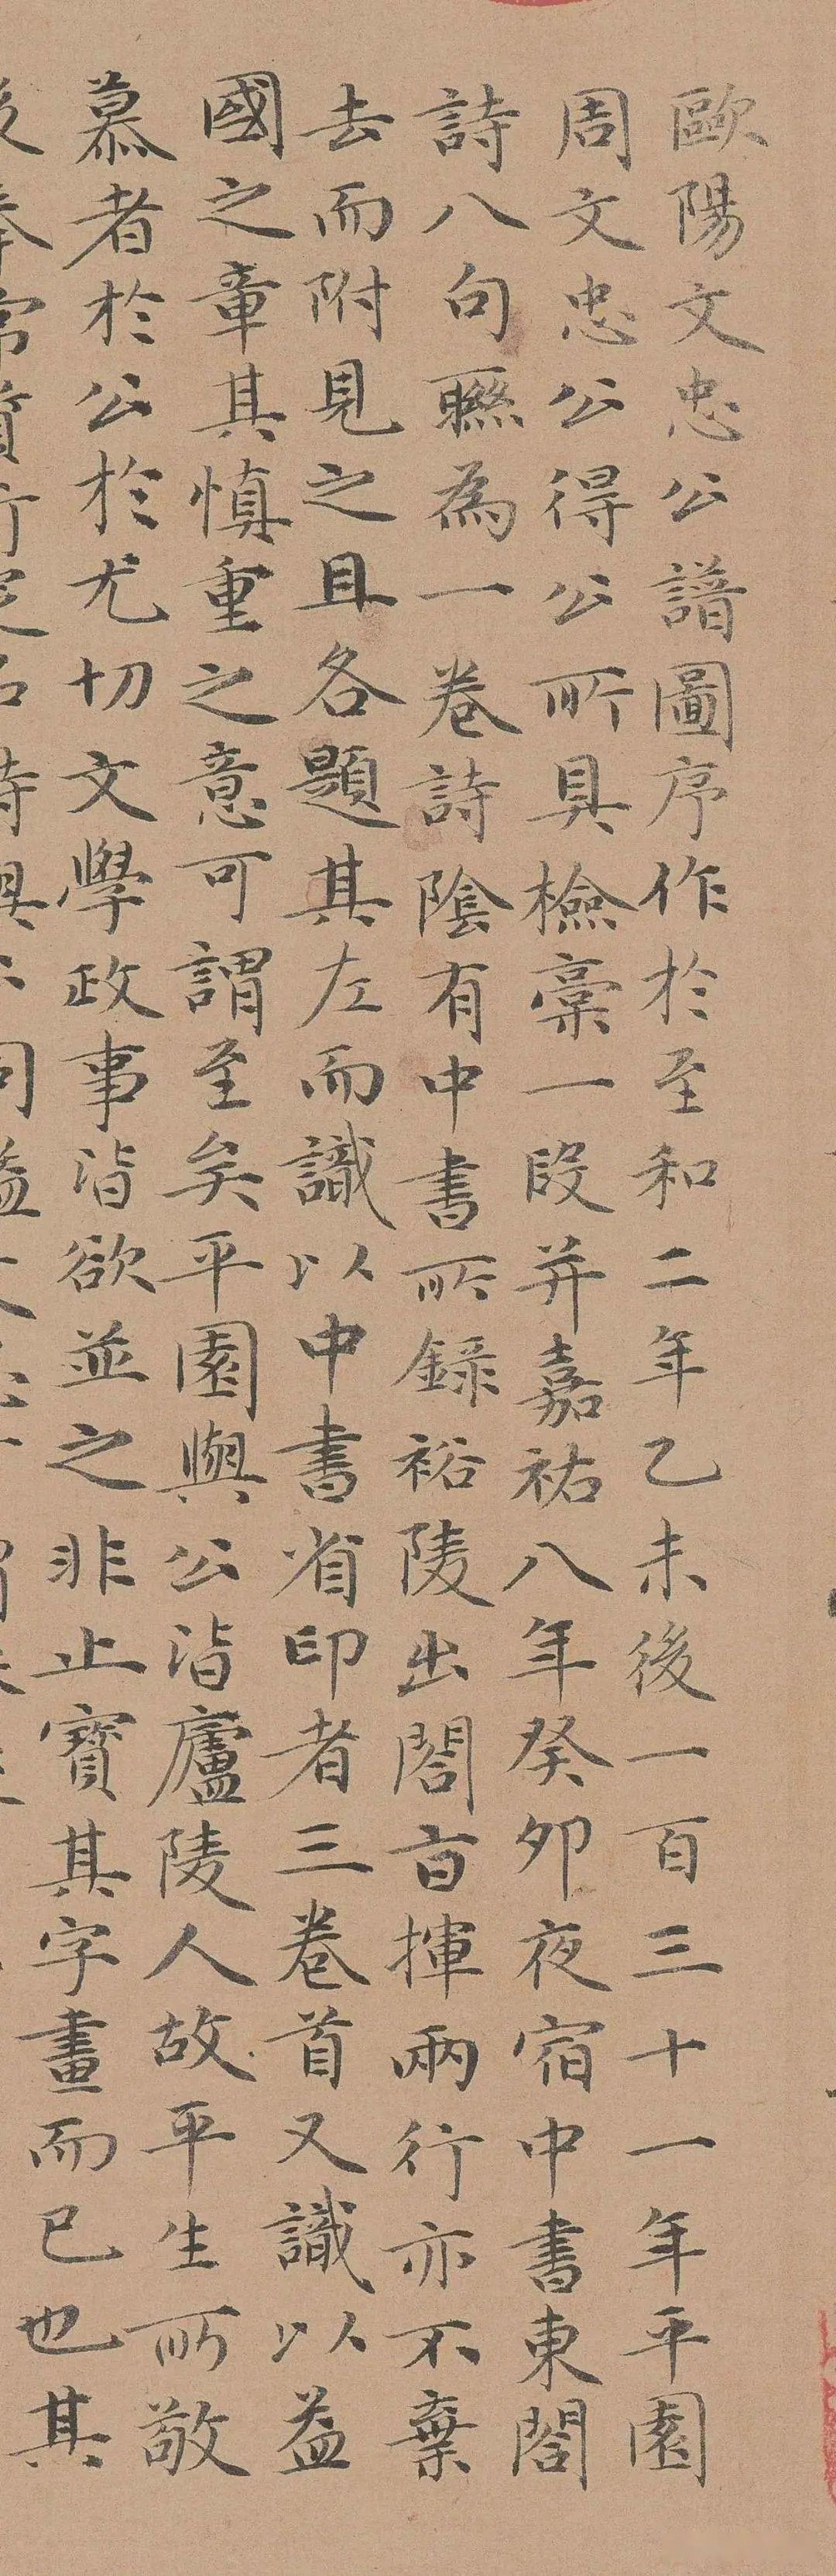 歐陽文忠公譜圖序作於至和二年乙未後一百三十一年平園
周文忠公得公所具檢稾一段并嘉祐八年癸卯夜宿中書東閤
詩八句聮為一卷詩陰有中書所録裕陵出閤百揮兩行亦不棄
去而附見之且各題其左而識以中書省印者三卷首又識以益
國之章其慎重之意可謂至矣平園與公皆廬陵人故平生所敬
慕者於公於尤切文學政事皆欲並之非止寳其字畫而已也其